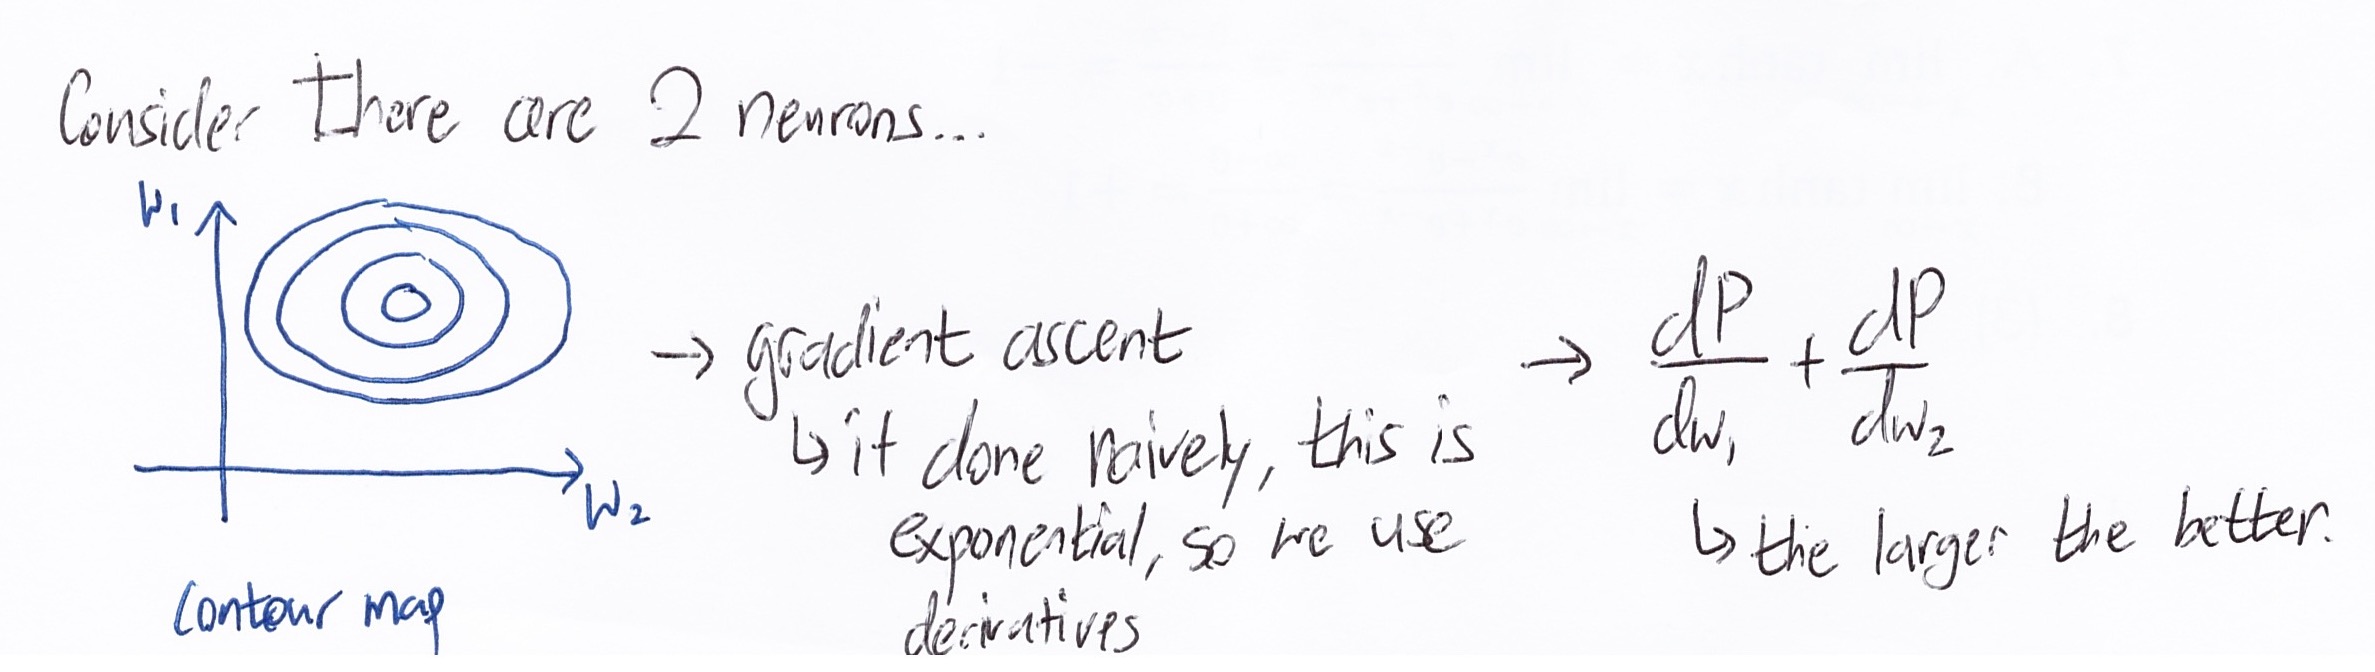 Consider there are 2 neurons...
W₁
W₂
contour map
→ gradient ascent
↳ if done naively, this is
exponential, so we use
derivatives
→ dP/dw₁ + dP/dw₂
↳ the larger the better.